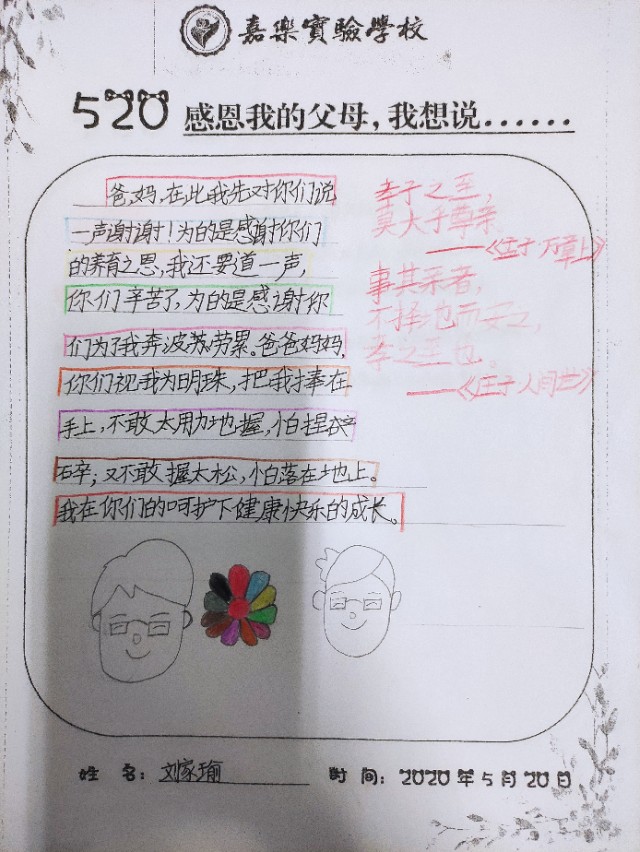 嘉樂實驗學校
520 感恩我的父母，我想说......
爸，妈，在此我先对你们说
一声谢谢！为的是感谢你们
的养育之恩，我还要道一声，
你们辛苦了，为的是感谢你
们为了我奔波劳累。爸爸妈妈，
你们视我为明珠，把我捧在
手上，不敢太用力地握，怕捏
碎；又不敢握太松，怕落在地上。
我在你们的呵护下健康快乐的成长。
孝子之至，
莫大于尊亲
——《孟子 万章上》
事其亲者，
不择地而安之，
孝之至也。
——《庄子 人间世》
姓 名：刘家瑜
时 间：2020年5月20日